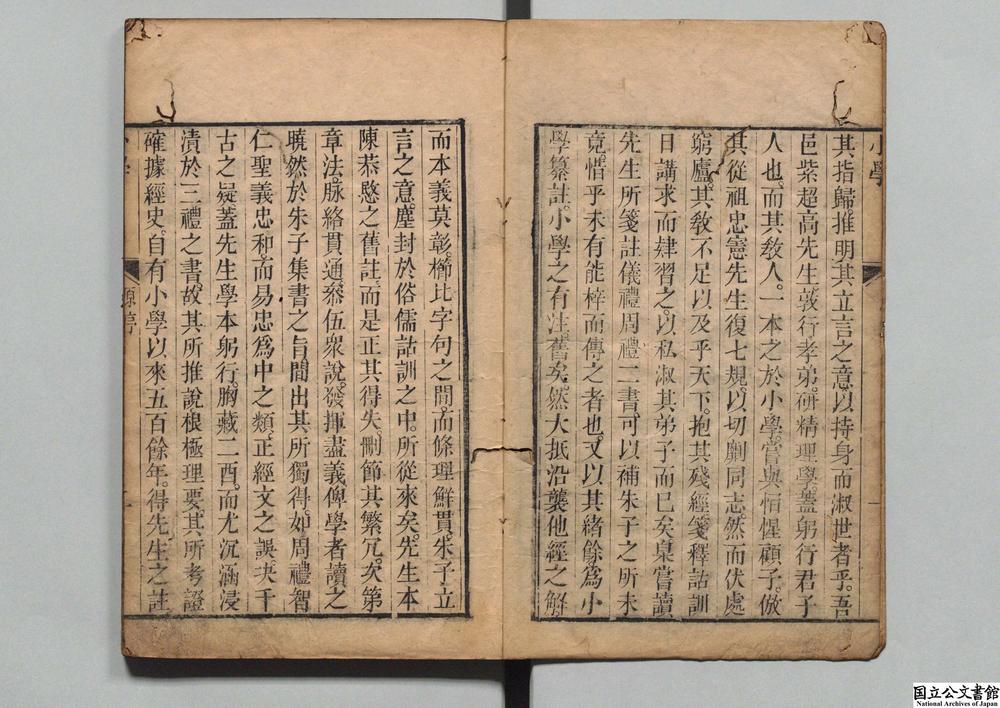 小學
其指歸推明其立言之意以持身而淑世者乎吾
邑紫超高先生敦行孝弟研精理學蓋躬行君子
人也而其敎人一本之於小學嘗與恒惺顧子倣
其從祖忠憲先生復七規以切劘同志然而伏處
窮廬其敎不足以及乎天下抱其殘經箋釋詁訓
日講求而肄習之以私淑其弟子而已矣㮚嘗讀
先生所箋註儀禮周禮二書可以補朱子之所未
竟惜乎未有能梓而傳之者也又以其緒餘爲小
學纂註小學之有注舊矣然大抵沿襲他經之解
而本義莫彰櫛比字句之間而條理鮮貫朱子立
言之意塵封於俗儒詁訓之中所從來矣先生本
陳恭愍之舊註而是正其得失刪節其繁冗次第
章法脉絡貫通叅伍衆說發揮盡義俾學者讀之
曉然於朱子集書之旨間出其所獨得如周禮智
仁聖義忠和而易忠爲中之類正經文之誤决千
古之疑蓋先生學本躬行胸藏二酉而尤沉涵浸
漬於三禮之書故其所推說根極理要其所考證
確據經史自有小學以來五百餘年得先生之註
国立公文書館
National Archives of Japan